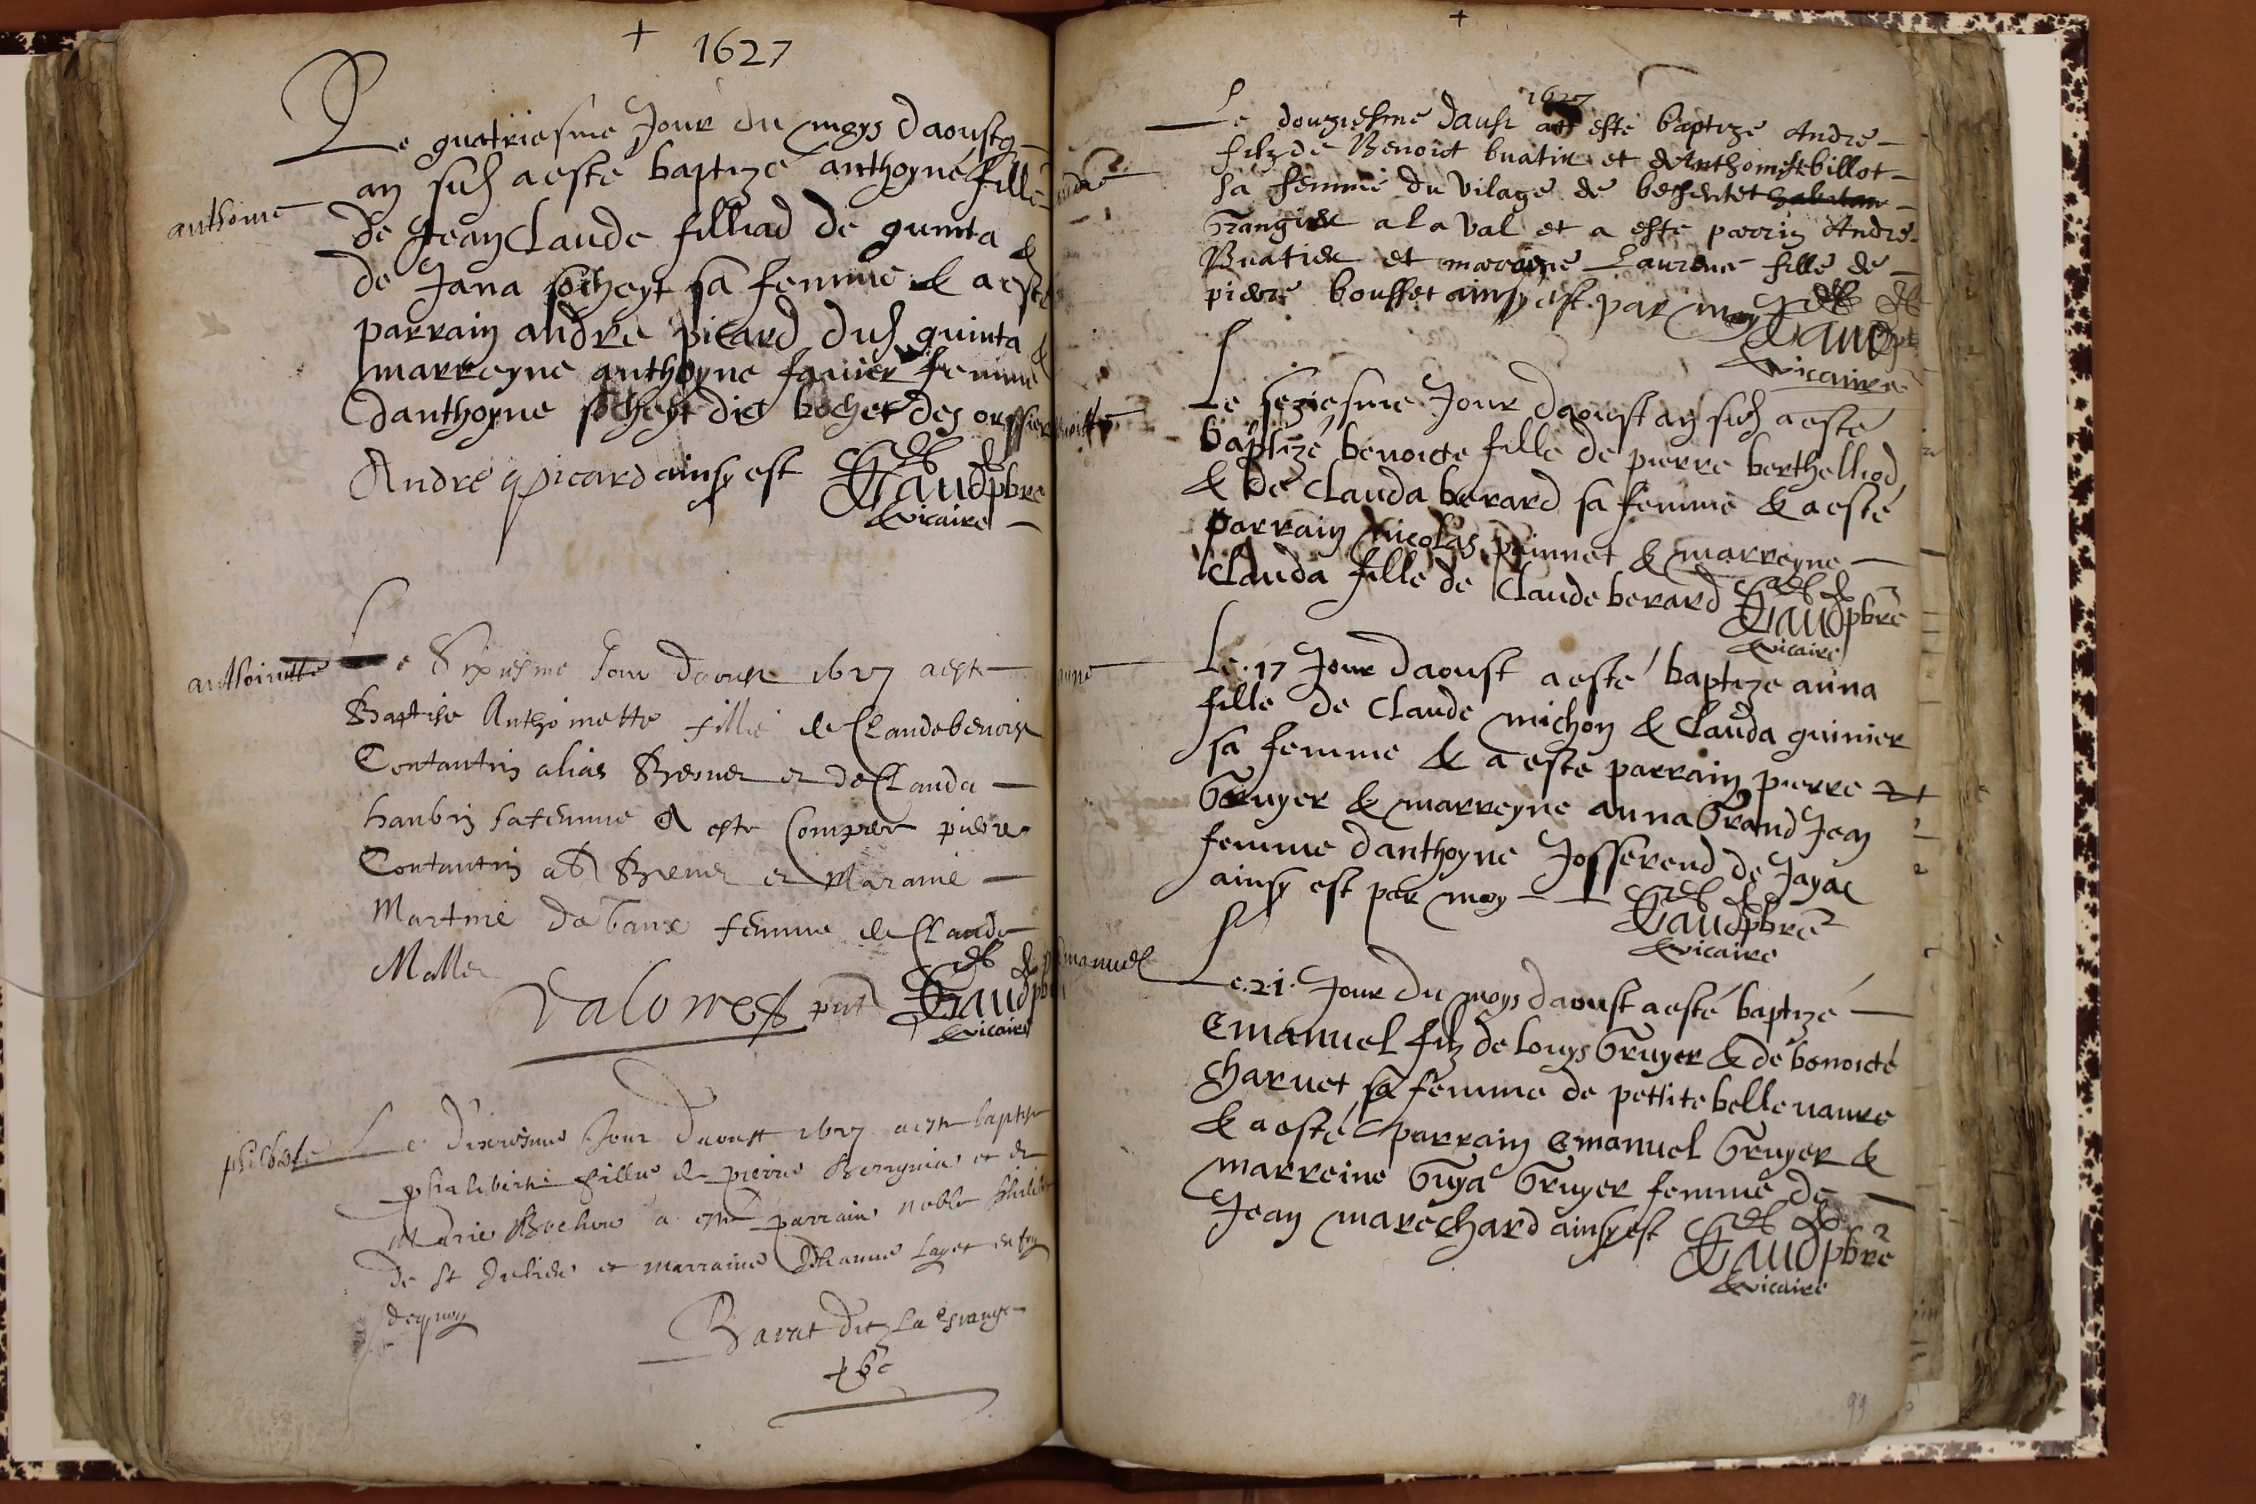 1627
Le quatriesme Jour du moys daoust
an susd a esté baptizé anthoyne fille
anthoine
de Jean Claude filliad de quinta &
de Jana socheyt sa femme & a esté
parrain andre picard dud quinta &
marreyne anthoyne femme
danthoyne socheyt dict bochet des
André picard ainsy est
Gaud pbre
& vicaire
anthoinette
Le Sixiesme Jour daoust 1627 a esté
Baptise Anthoinette fille de Claude benoist
Contantin alias Brevet et de Clauda
sa femme A este Comper pierre
Contantin et Maraine
Martine femme de Claude
Mallet
Valomes pnt
Gaud pbre
& vicaire
philberte
Le Dixiesme Jour Daoust 1627 a este baptisé
philiberte fillie de pierre et de
Marie Bochu a esté parrain noble
De St Julien et marraine
Barat Dit La
pbre
1627
Le douziesme daust esté baptize Andre
filz de Benoict buatier et billot
andre
sa femme du vilage de
Grangier a la val et a este parrin Andre
Buatier et marreine Laurence fille de
pierre bousset ainsy est par moy
Gaud pbre
& vicaire
Le seziesme Jour daoust an susd a esté
baptizé benoicte fille de pierre berthelliod
& de Clauda berard sa femme & a esté
parrain nicolas & marreyne
Clauda fille de Claude berard
Gaud pbre
& vicaire
anne
Le 17 Jour daoust a esté baptize anna
fille de Claude michon & Clauda guinier
sa femme & a este parrain pierre
Gruyer & marreyne anna Grand Jean
femme danthoyne Josserend de Jayac
ainsy est par moy
Gaud pbre
& vicaire
Emanuel
Le 21 Jour du moys daoust a esté baptizé
Emanuel filz de Louys Gruyer & de benoicte
Charvet sa femme de pettite bellevavre
& a esté parrain Emanuel Gruyer &
marreine Guya Gruyer femme de
Jean marechard ainsy est
Gaud pbre
& vicaire
99